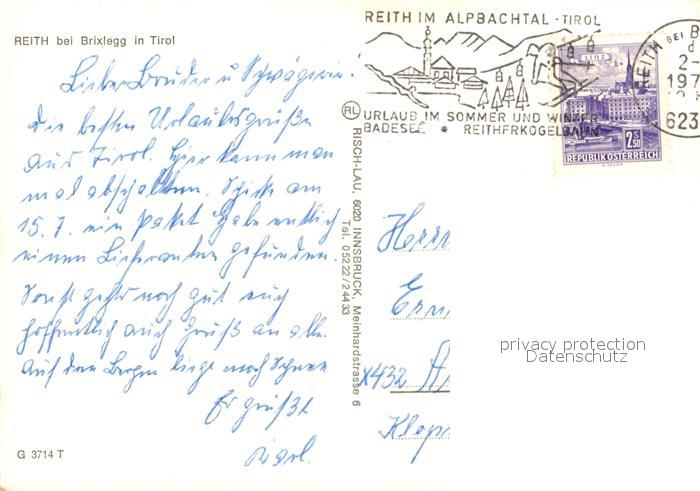 REITH bei Brixlegg in Tirol
Lieber Bruder u Schwägerin!
Die besten Urlaubsgrüße
aus Tirol. Hier kann man
mal abschalten. Schicke am
15. 7. ein Paket. Habe endlich
einen Lieferanten gefunden.
Sonst gehts noch gut euch
hoffentlich auch Gruß an alle.
Auf den Bergen liegt noch Schnee
Es grüßt
Karl.
G 3714 T
RL
RISCH-LAU, 6020 INNSBRUCK, Meinhardstrasse 6
Tel. 05222/24433
REITH IM ALPBACHTAL - TIROL
URLAUB IM SOMMER UND WINTER
BADESEE * REITHERKOGELBAHN
REITH BEI B
2-
197
623
LINZ
2.50
REPUBLIK ÖSTERREICH
Herrn
Ern
x432 A
Klop
privacy protection
Datenschutz